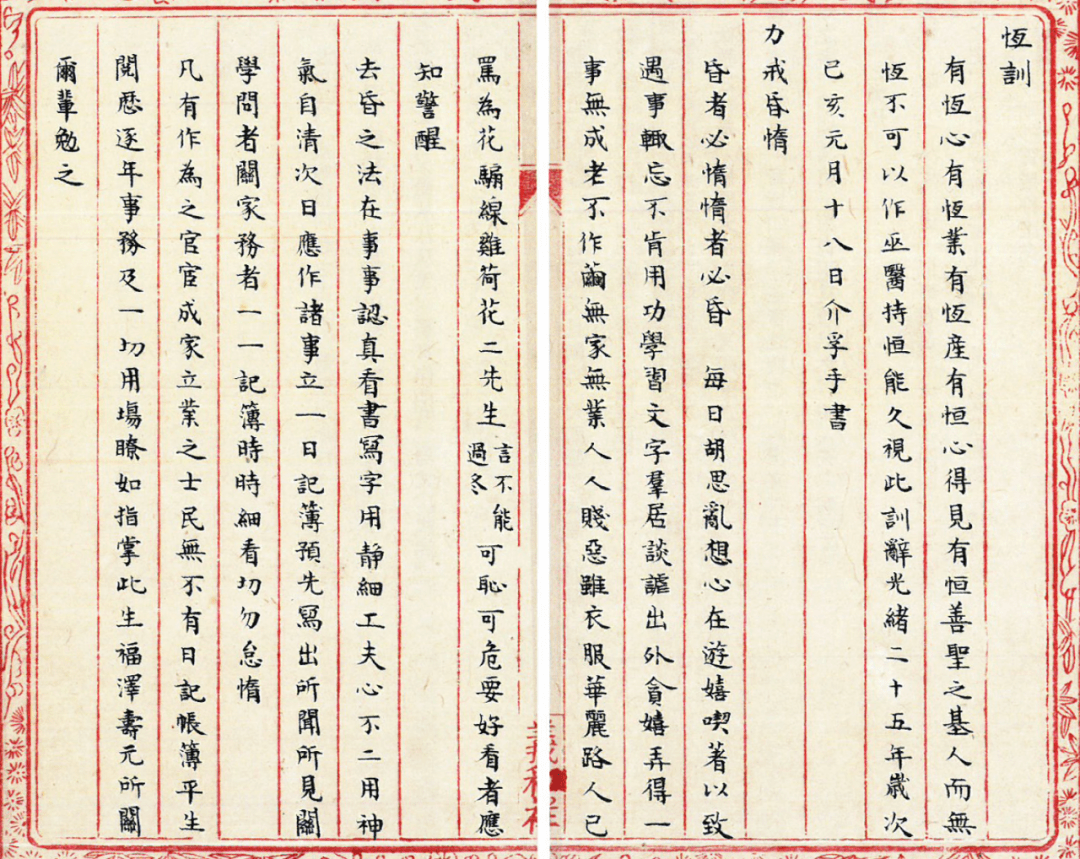 恆訓
有恆心有恆業有恆産有恒心得見有恒善聖之基人而無
恆不可以作巫醫持恒能久視此訓辭光緒二十五年歲次
己亥元月十八日介孚手書
力戒昏惰
昏者必惰惰者必昏 每日胡思亂想心在遊嬉喫著以致
遇事輙忘不肯用功學習文字羣居談謔出外貪嬉弄得一
事無成老不作繭無家無業人人賤惡雖衣服華麗路人已
罵為花騙線雞荷花二先生言不能過冬可恥可危要好看者應
知警醒
去昏之法在事事認真看書寫字用靜細工夫心不二用神
氣自清次日應作諸事立一日記簿預先寫出所聞所見關
學問者關家務者一一記簿時時細看切勿怠惰
凡有作為之官宦成家立業之士民無不有日記帳簿平生
閱歷逐年事務及一切用場瞭如指掌此生福澤壽元所關
爾輩勉之